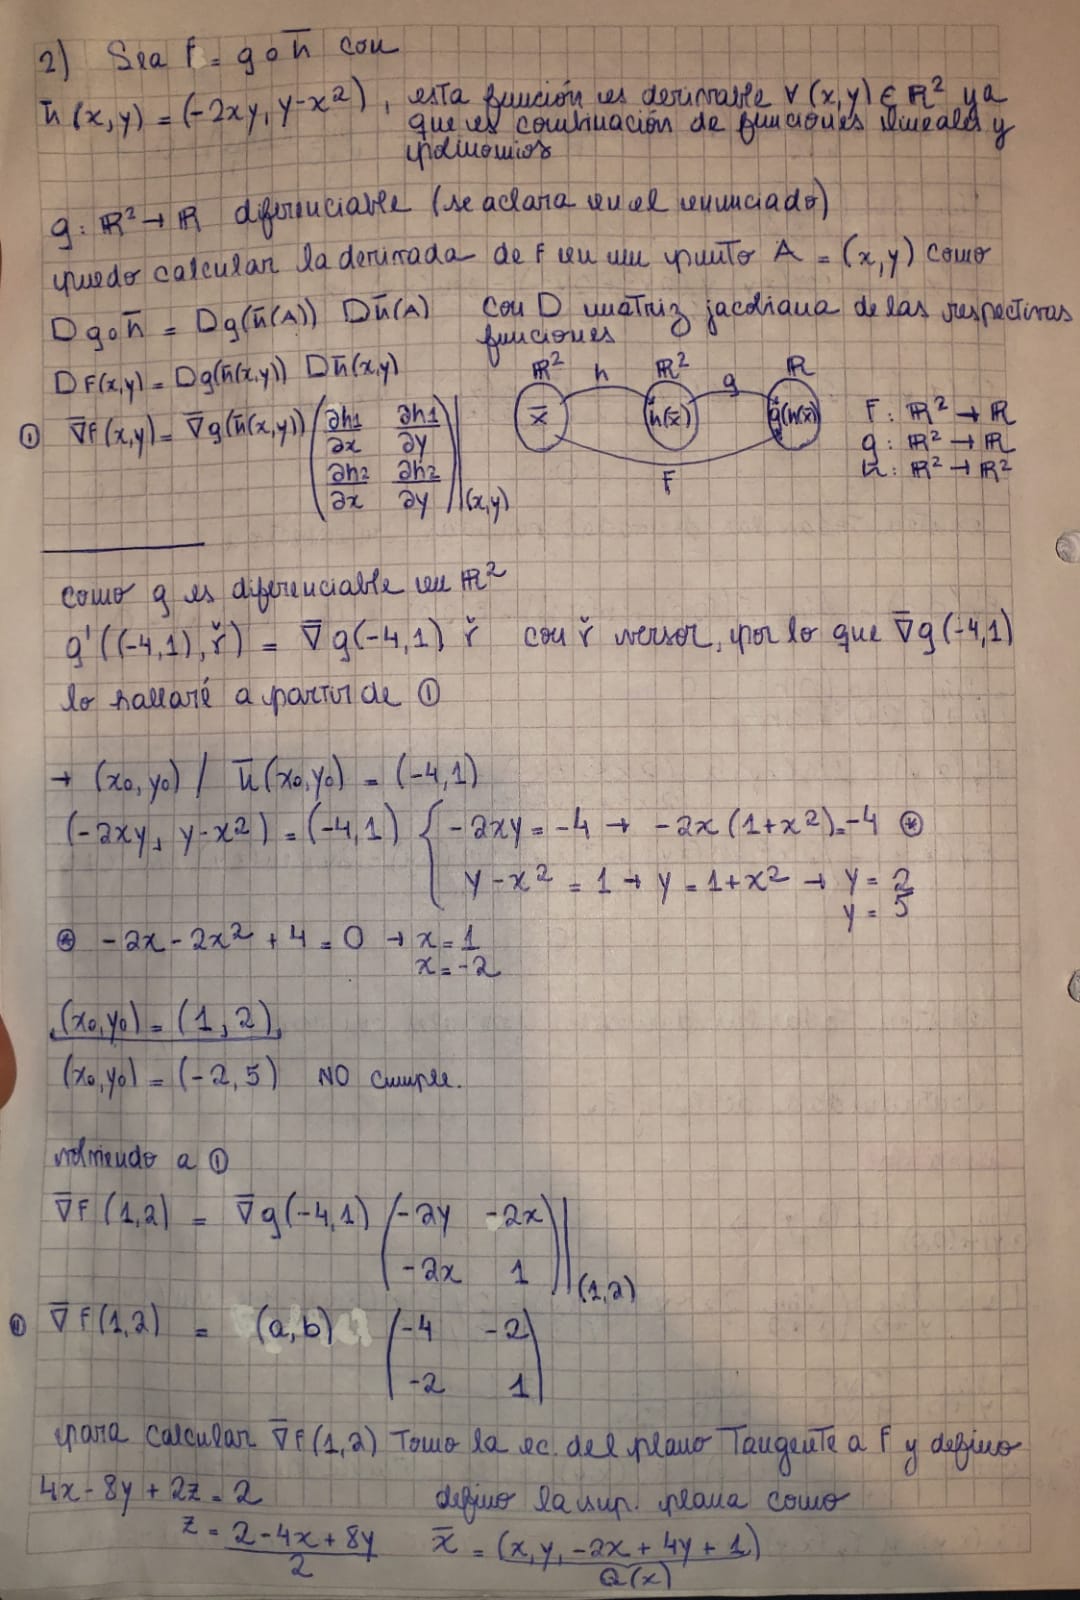 2) Sea F = g o h̄ con
h̄(x,y) = (-2xy, y-x²), esta función es derivable ∀ (x,y) ∈ ℝ² ya
que es combinación de funciones lineales y
polinomios
g: ℝ² → ℝ diferenciable (se aclara en el enunciado)
puedo calcular la derivada de F en un punto A = (x,y) como
D g o h̄ = Dg(h̄(A)) Dh̄(A) con D matriz jacobiana de las respectivas
funciones
DF(x,y) = Dg(h̄(x,y)) Dh̄(x,y)
ℝ² h ℝ² g ℝ
x̄ h̄(x̄) g(h(x̄))
F
F: ℝ² → ℝ
g: ℝ² → ℝ
h̄: ℝ² → ℝ²
① ∇̄F(x,y) = ∇̄g(h̄(x,y)) (∂h1/∂x ∂h1/∂y
∂h2/∂x ∂h2/∂y)|(x,y)
como g es diferenciable en ℝ²
g'((-4,1), ř) = ∇̄g(-4,1) ř con ř versor, por lo que ∇̄g(-4,1)
lo hallaré a partir de ①
→ (x₀,y₀) / h̄(x₀,y₀) = (-4,1)
(-2xy, y-x²) = (-4,1) { -2xy = -4 → -2x(1+x²) = -4 ⊛
y-x² = 1 → y = 1+x² → y = 2
y = 5
⊛ -2x - 2x² + 4 = 0 → x = 1
x = -2
(x₀,y₀) = (1,2)
(x₀,y₀) = (-2,5) NO cumple.
volviendo a ①
∇̄F(1,2) = ∇̄g(-4,1) (-2y -2x
-2x 1)|(1,2)
① ∇̄F(1,2) = (a,b) (-4 -2
-2 1)
para calcular ∇̄F(1,2) Tomo la ec. del plano Tangente a F y defino
4x - 8y + 2z = 2 defino la sup. plana como
z = (2-4x+8y)/2 x̄ = (x, y, -2x + 4y + 1)
Q(x)